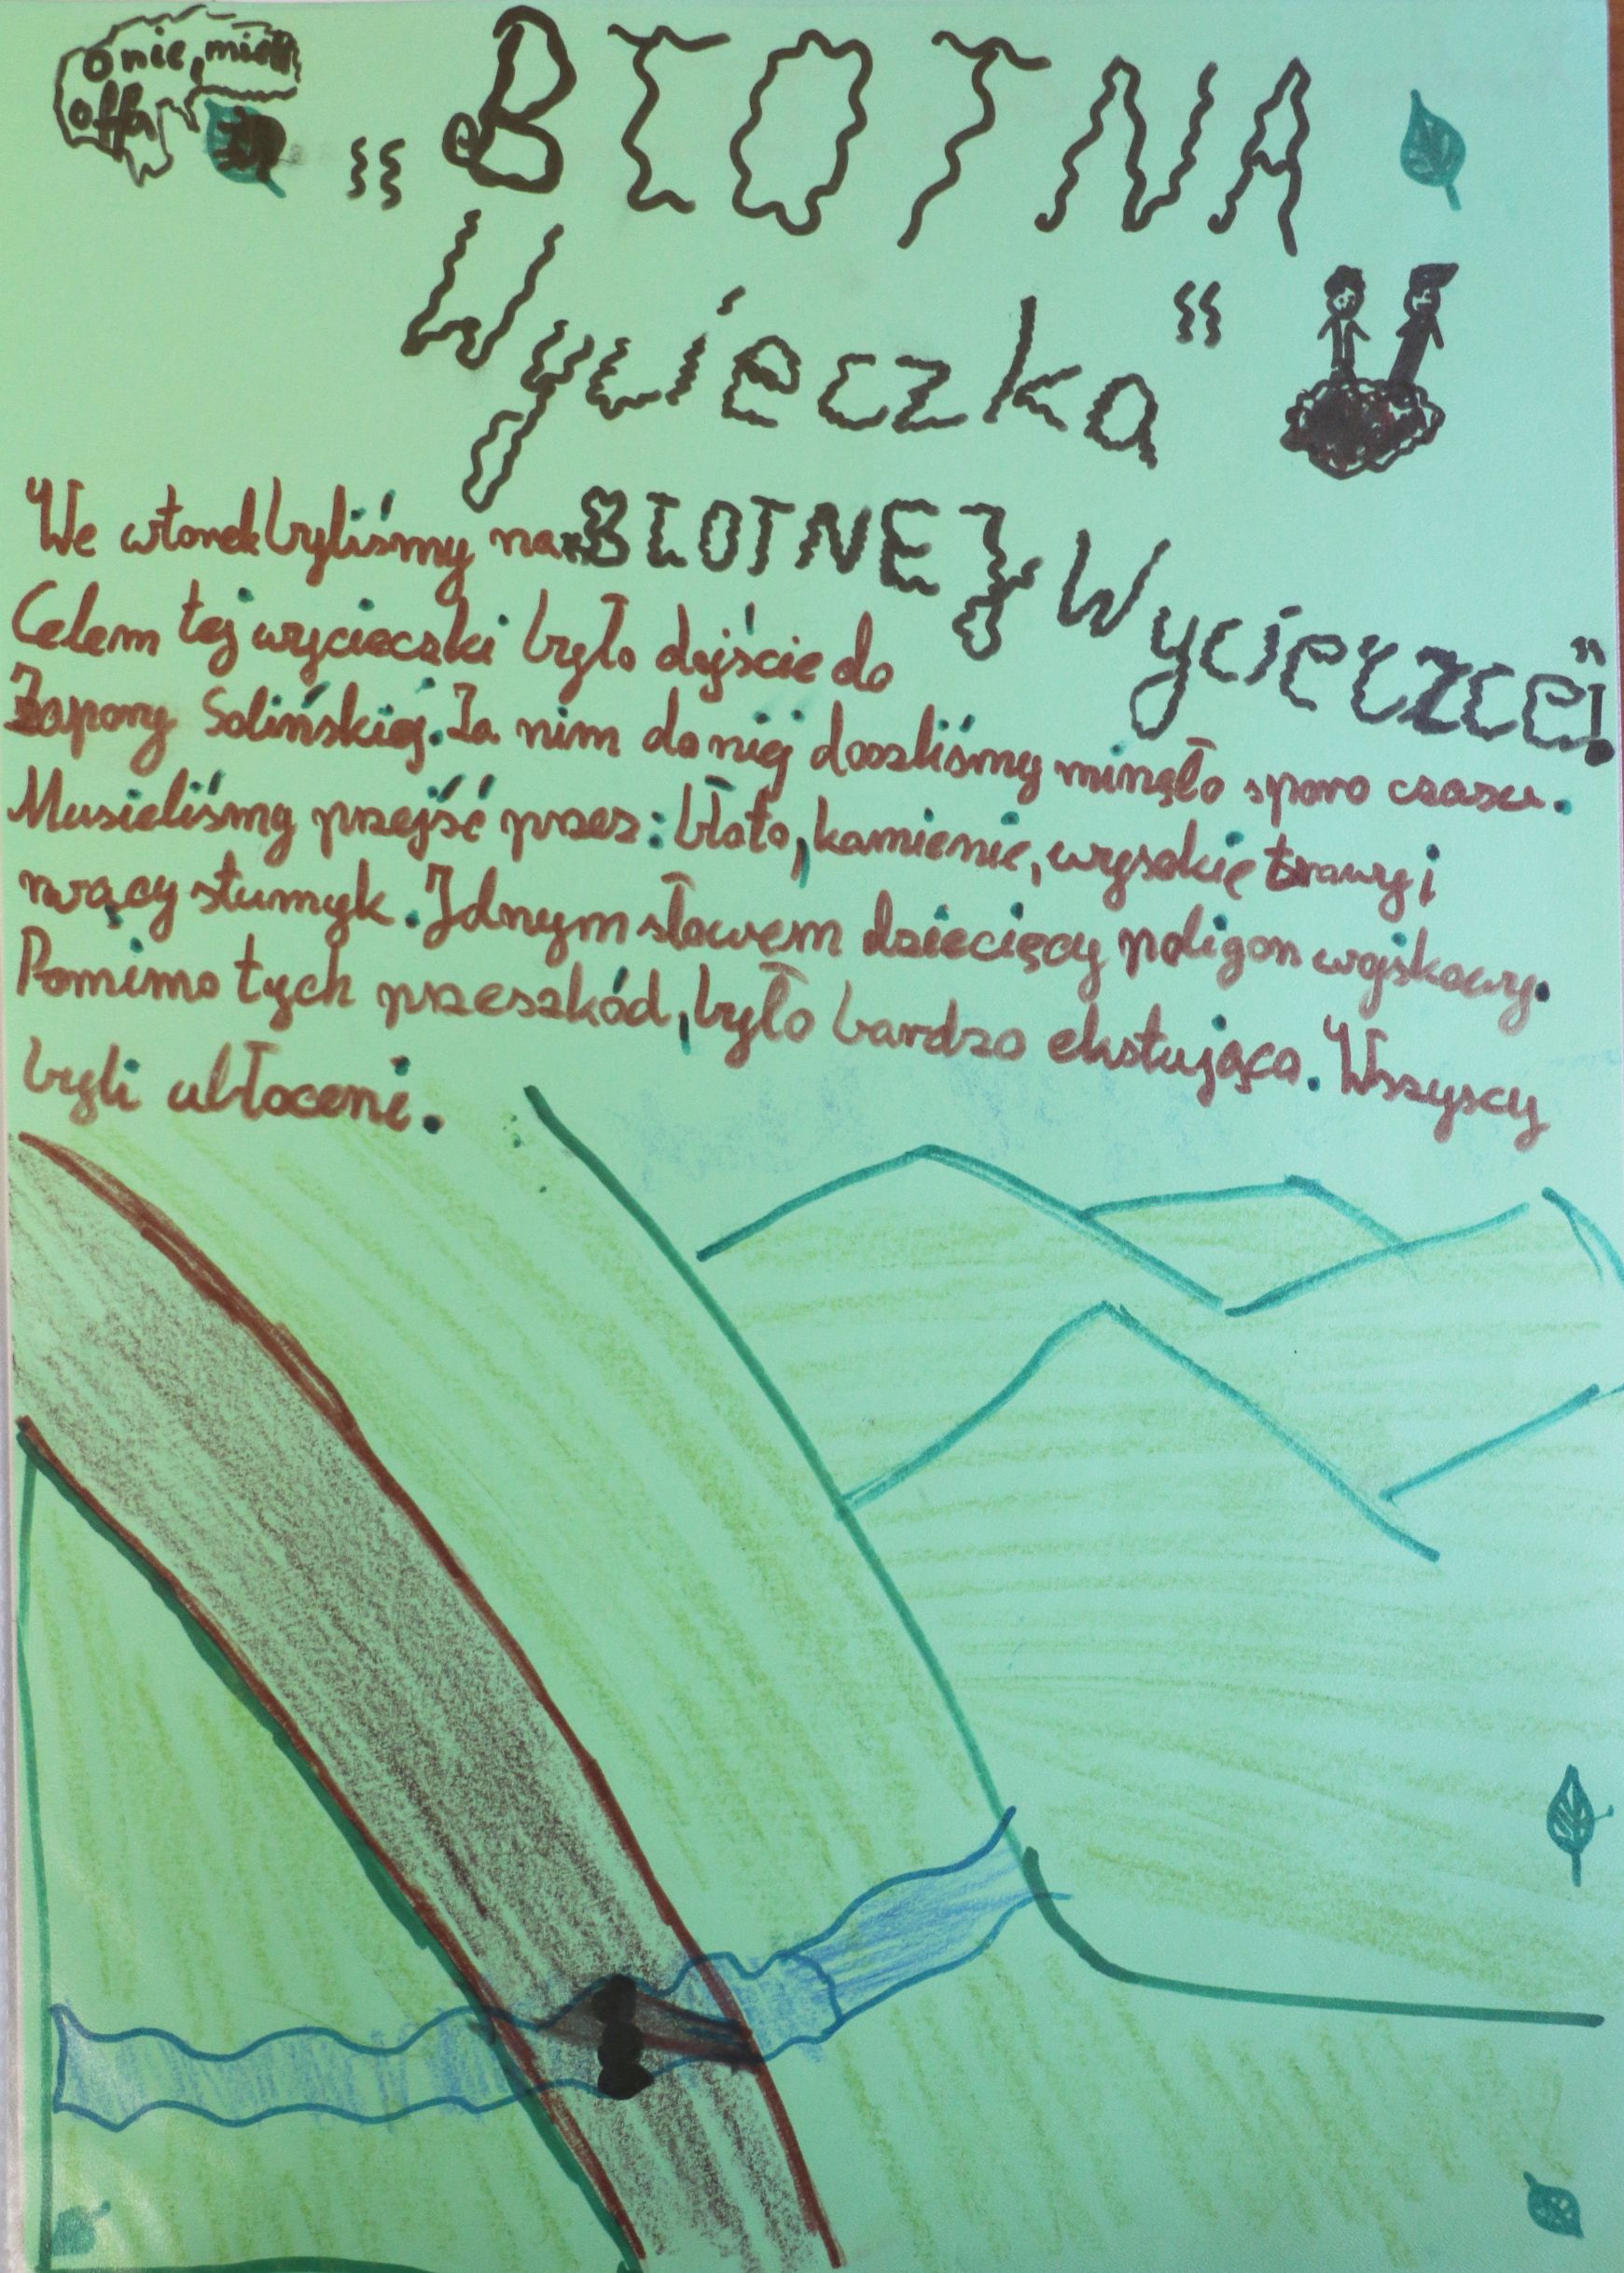 o nie,
offa
"BŁOTNA
Wycieczka"
We wtorek byliśmy na "BŁOTNEJ Wycieczce"!
Celem tej wycieczki było dojście do
Zapory Solińskiej. Za nim do niej doszliśmy minęło sporo czasu.
Musieliśmy przejść przez: błoto, kamienie, wysokie trawy i
rwący stumyk. Jednym słowem dziecięcy poligon wojskowy.
Pomimo tych przeszkód, było bardzo ekstująco. Wszyscy
byli ubłoceni.